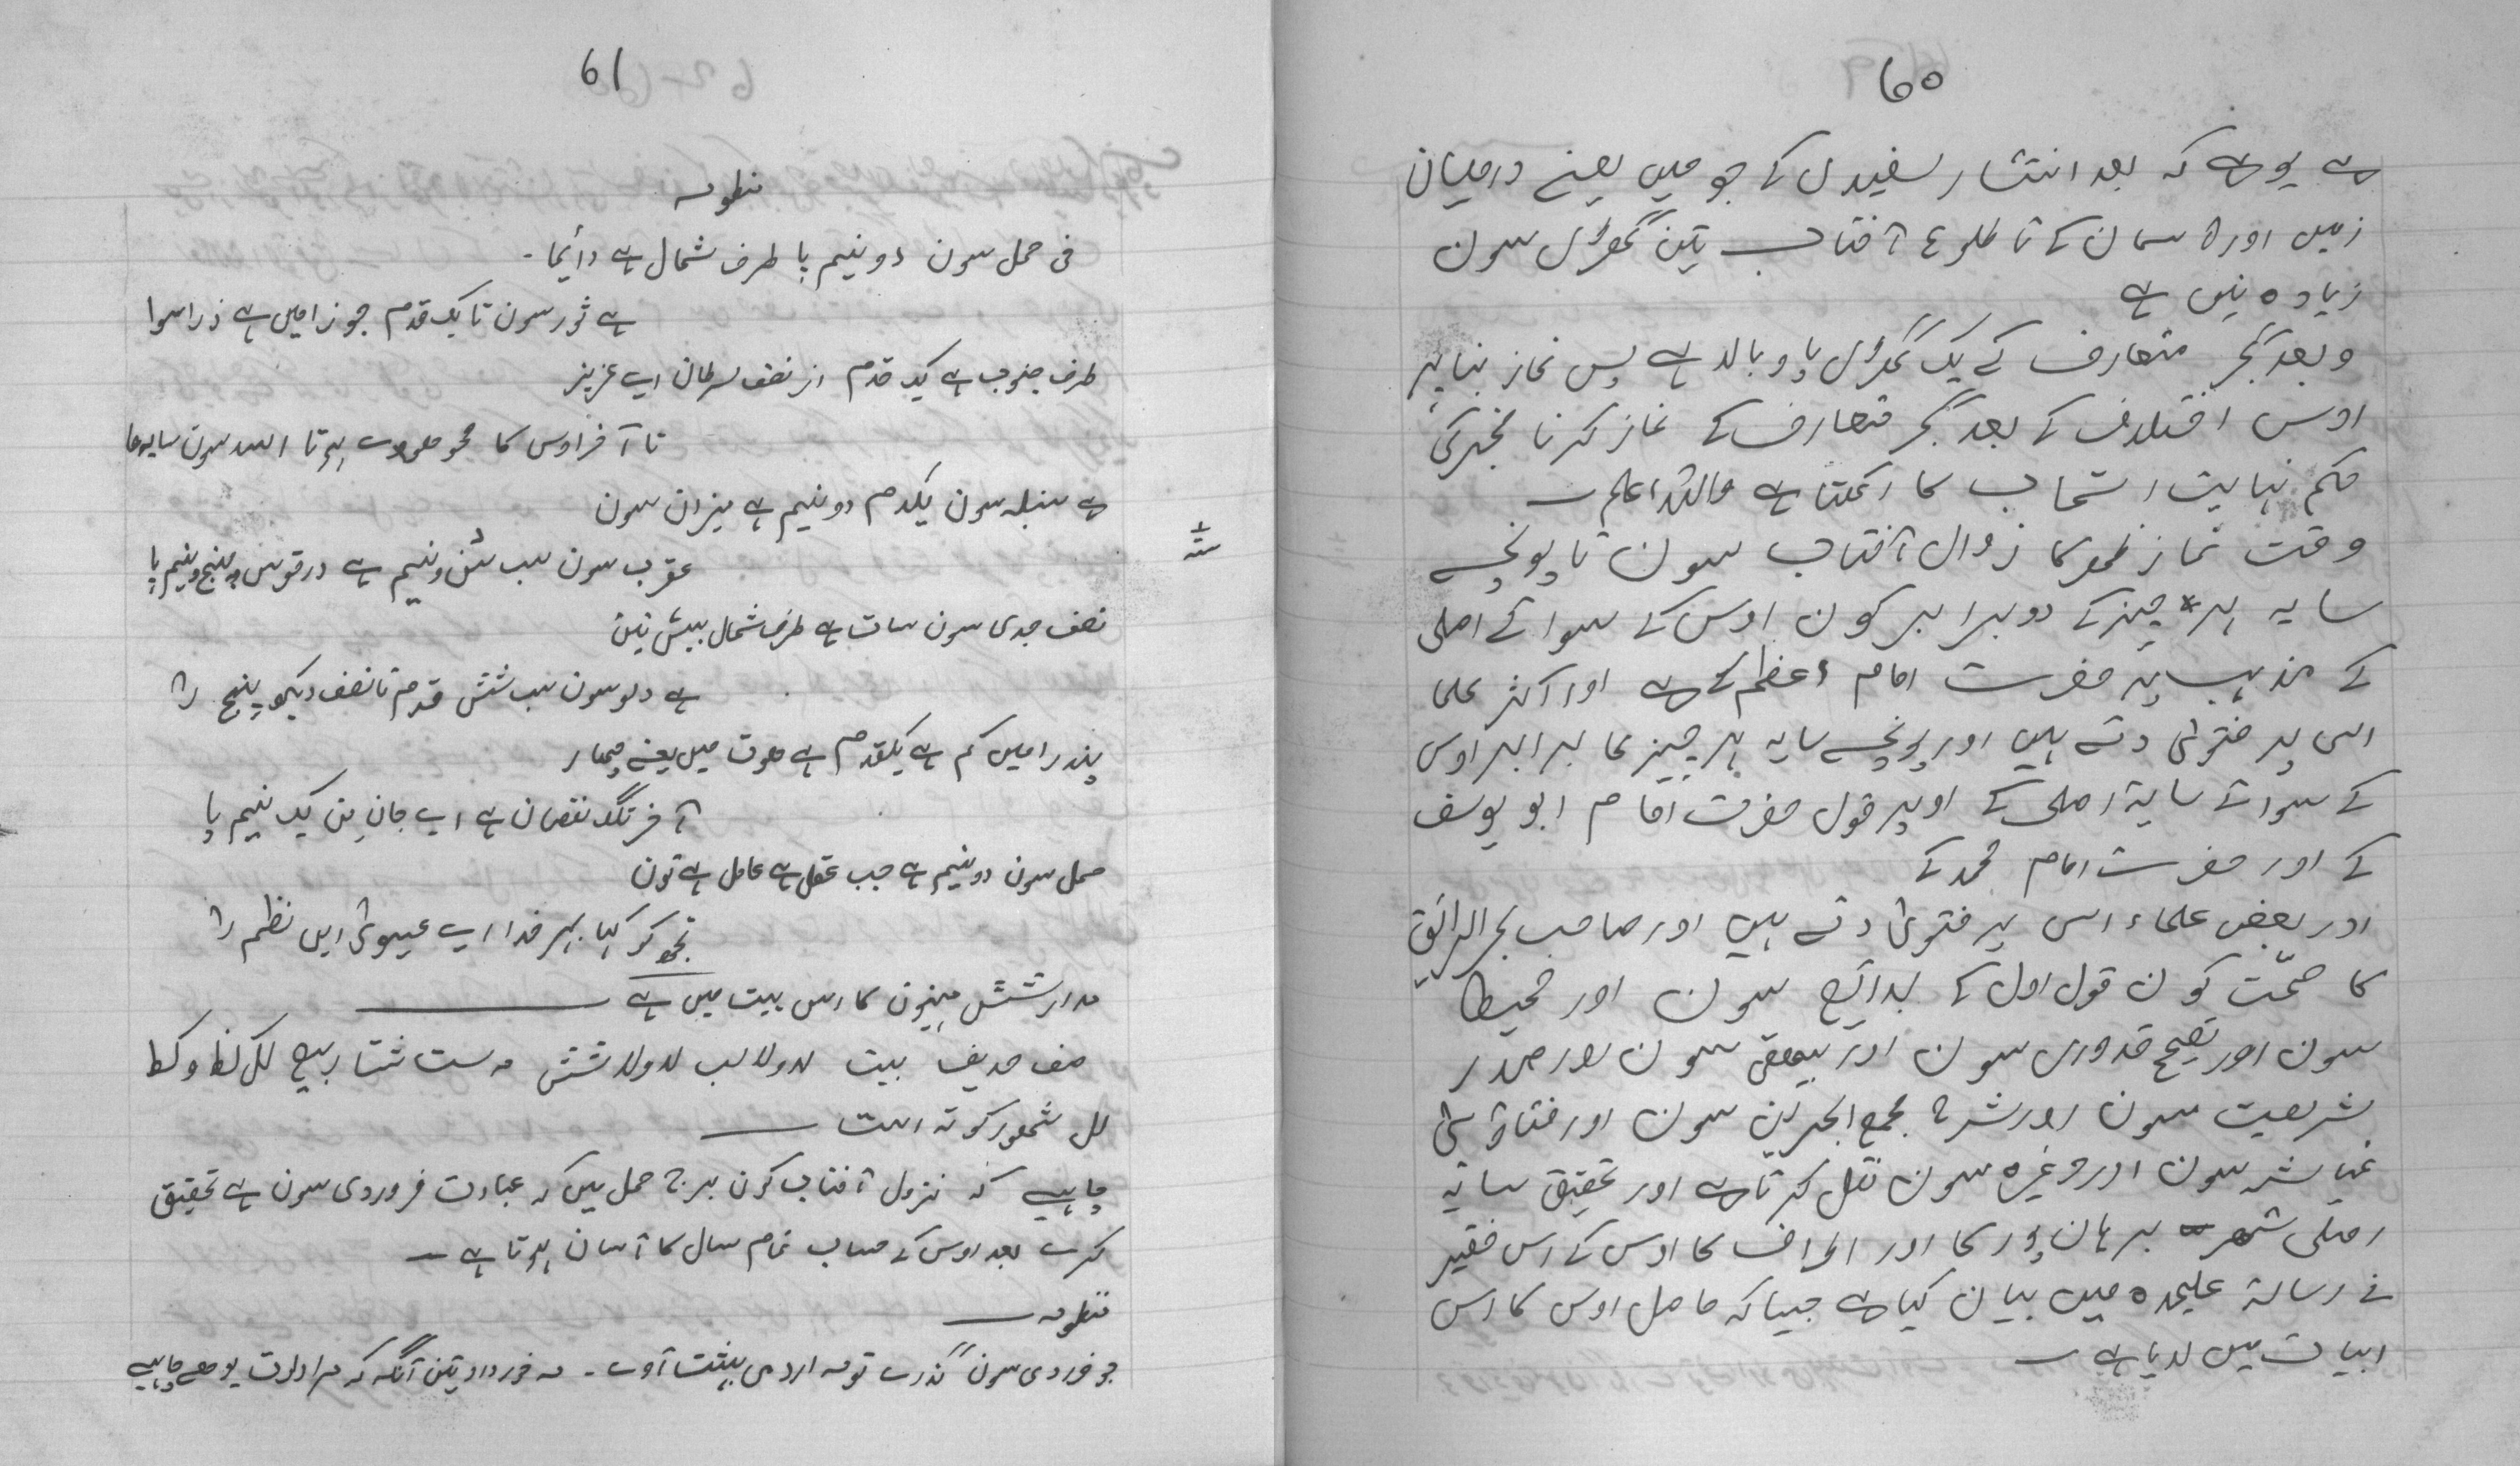 60
ہے یو ہے کہ بعد انتشار سفیدی کے جو میں یعنے درمیان
زمین اور آسمان کے تا طلوع آفتاب تین گھڑی سون
زیادہ نیں ہے
و بعد فجر متعارف کے یک گھڑی پاو بالا ہے پس نماز بنا بر
اوس اختلاف کے بعد فجر متعارف کے نماز کرنا فجر کی
حکم نہایت استحباب کا رکھتا ہے واللہ اعلم
وقت نماز ظہر کا زوال آفتاب سون تا پونچے
سایہ ہر چیز کے دو برابر کون اوس کے سوائے اصلی
کے مذہب پر حضرت امام اعظم کے ہے اور اکثر علما
اسی پر فتویٰ دتے ہیں اور پونچے سایہ ہر چیز کا برابر اوس
کے سوائے سایۂ اصلی کے اوپر قول حضرت امام ابو یوسف
کے اور حضرت امام محمد کے
اور بعض علماء اس پر فتویٰ دتے ہیں اور صاحب بحر الرائق
کا صحّت کون قول اول کے بدائع سون اور محیط
سون اور تصحیح قدوری سون اور بیہقی سون اور صدر
شریعت سون اور شرح مجمع البحرین سون اور فتاوٰی
غیاثیہ سون اور وغیرہ سون نقل کرتا ہے اور تحقیق سایہ
اصلی شہر برہان پور کا اور اطراف کا اوس کے اس فقیر
نے رسالۂ علیحدہ میں بیان کیا ہے جیسا کہ حاصل اوس کا اس
ابیات میں لایا ہے
61
منظومہ
فی حمل سون دو نیم پا طرف شمال ہے دائما۔
ہے ثور سون تا یک قدم جوزا میں ہے ذرا سوا
طرف جنوب ہے یک قدم از نصف سرطان اے عزیز
تا آخر اوس کا محو ہووے ہوتا اسد سون سایہ ہا
ہے سنبلہ سون یکدم دو نیم ہے میزان سون
عقرب سون سب شش و نیم ہے در قوس و پنج و نیم پا
نصف جدی سون سات ہے طرف شمال بیش نیں
ہے دلو سون سب شش قدم تا نصف دیکھو پنج را
پندرا میں کم ہے یکقدم ہے حوت میں یعنے چہار
آخر تلگ نقصان ہے اے جانِ من یک نیم پا
حمل سون دو نیم ہے جب عقل ہے عامل ہے تون
تجھ کو کہا بہر خدا اے عیسوی ایں نظم را
مدار شش مہینوں کا اس بیت میں ہے
بیت لا و لا لب لا ولا شش مہ ست
لل شہور کوتہ است
چاہیے کہ نزول آفتاب کون برج حمل میں کہ عبارت فروردی سون ہے تحقیق
کرے بعد اوس کے حساب تمام سال کا آسان ہوتا ہے
منظومہ
جو فروردی سون گذرے تو مہ اردی بہشت آوے۔ مہ خورداد